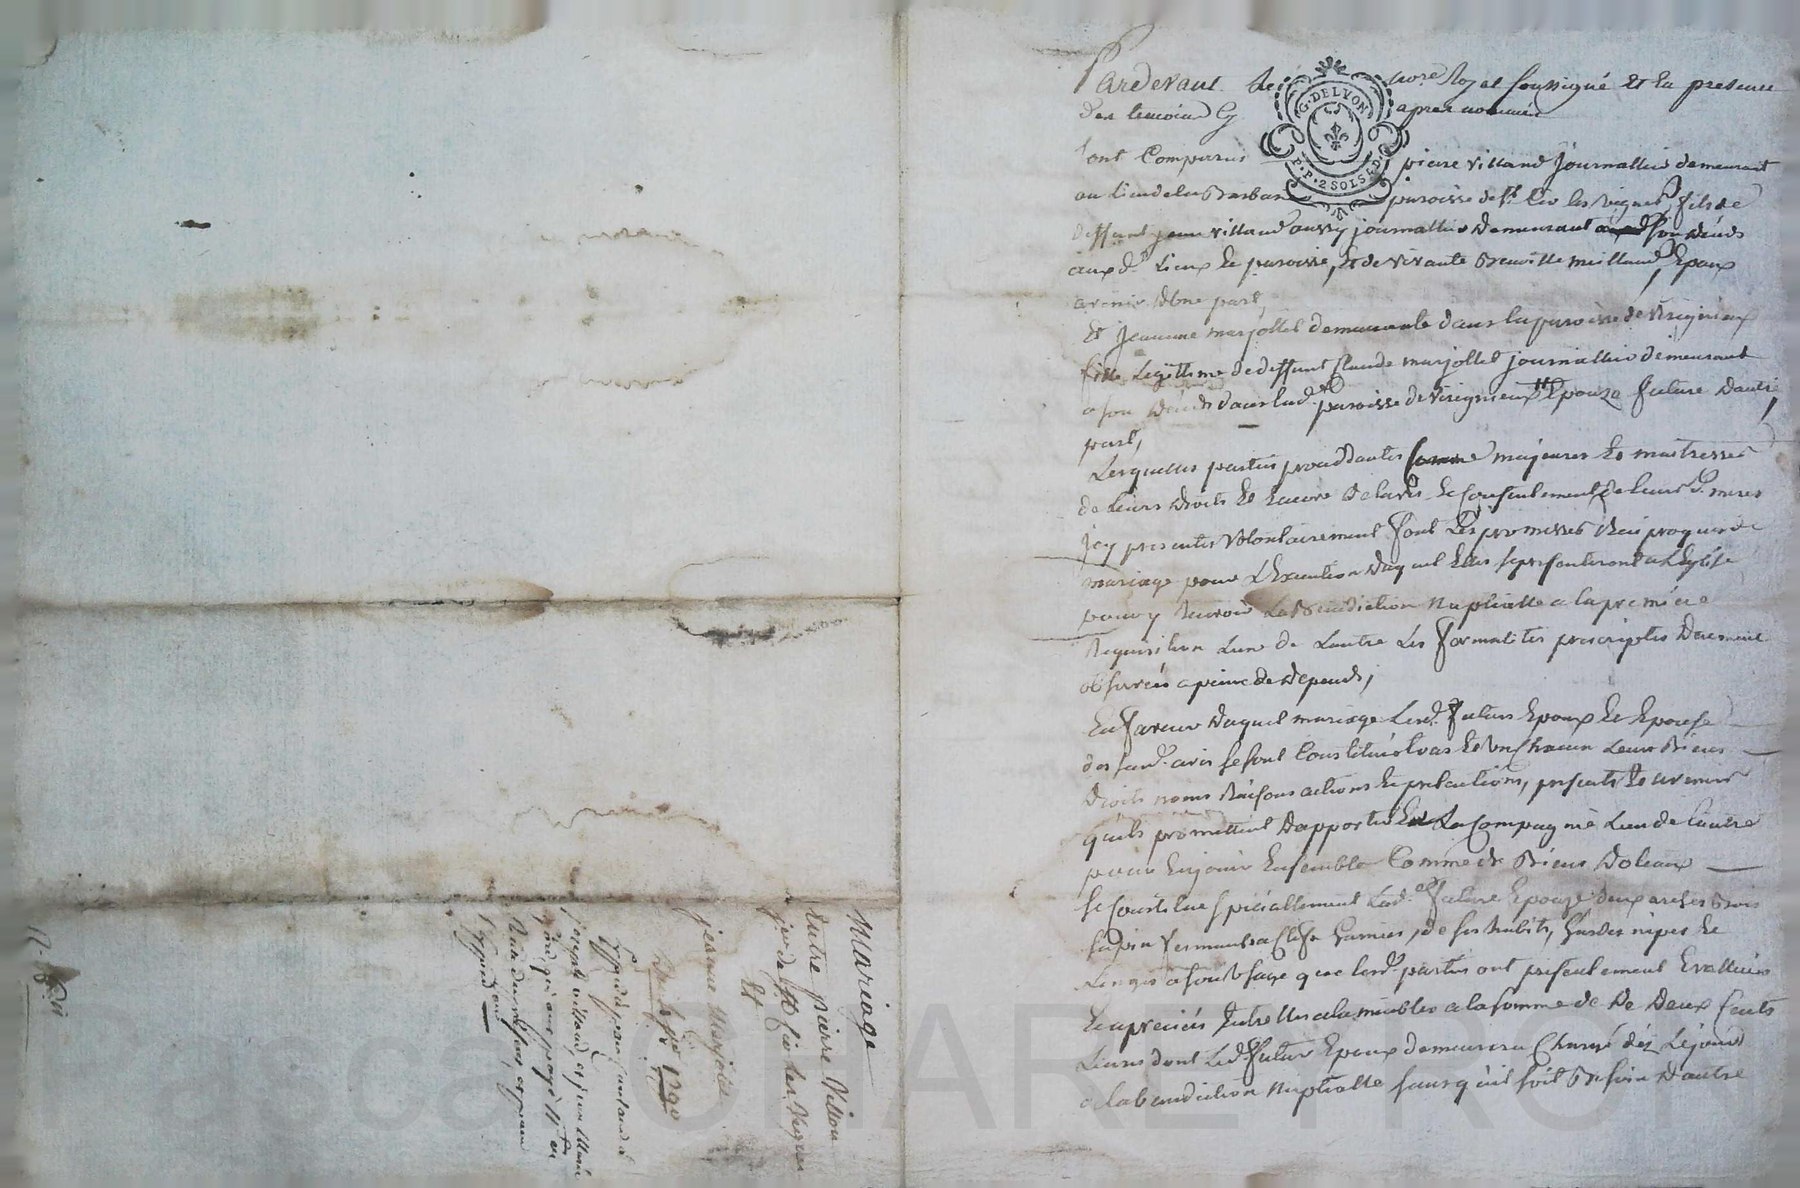 Pardevant le nore Royal soussigné et En presence
des temoins Cy apres nommés
sont Comparus pierre villand Journallier demeurant
au Lieu de la Barban paroisse de St Cir les vignes, fils de
deffunt jean villand aussy journallier demeurant a son décés
aux ds Lieux et paroisse, Et de vivante Benoitte meilland, Epoux
avenir d'Une part,
Et Jeanne marjollet demeurante dans la paroisse de virignieux
fille Legittime de deffunt Claude marjollet journallier demeurant
a son décés dans lad. paroisse de virignieux Epouze future d'autre
part,
Lesquelles parties procédantes comme majeures Et maitresses
de leurs droits Et Encore de l'avis Et Consentement de leurs d. meres
Icy presentes volontairement font Les promesses Reciproques de
mariage pour L'Execution duquel Elles se presenteront a L'Eglise
pour y Recevoir La Benediction Nuptialle a la premiere
Requisition L'un de L'autre Les formalités prescriptes duement
observées a peine de depends,
En faveur duquel mariage Lesd. futurs Epoux Et Epouse
des susd. avis se sont Constitués tous Et un Chacun Leurs Biens
droits noms Raisons actions Et pretentions, presents Et avenir
qu'ils promettent d'apporter En La Compagnie L'un de l'autre
pour En jouir Ensemble Comme de Biens dotaux
se Constitue specialement Lad. future Epouze deux arches Bois
sapin fermantes a Clef Garnies, de ses habits, hardes nipes Et
Linges a son usage que lesd. parties ont presentement Evalluées
Et apreciés Entre Elles a la somme de De Deux Cents
Livres dont Led. futur Epoux demeurera Chargé dés Le jour d
e la benediction Nuptialle sans qu'il soit Besoin d'autre
Mariage
Entre pierre Villan
de St Cir les Vignes
Et
jeanne Marjollet
1790
G. DE LYON
P.P. 2 SOLS 4 D.
CHAREYRON